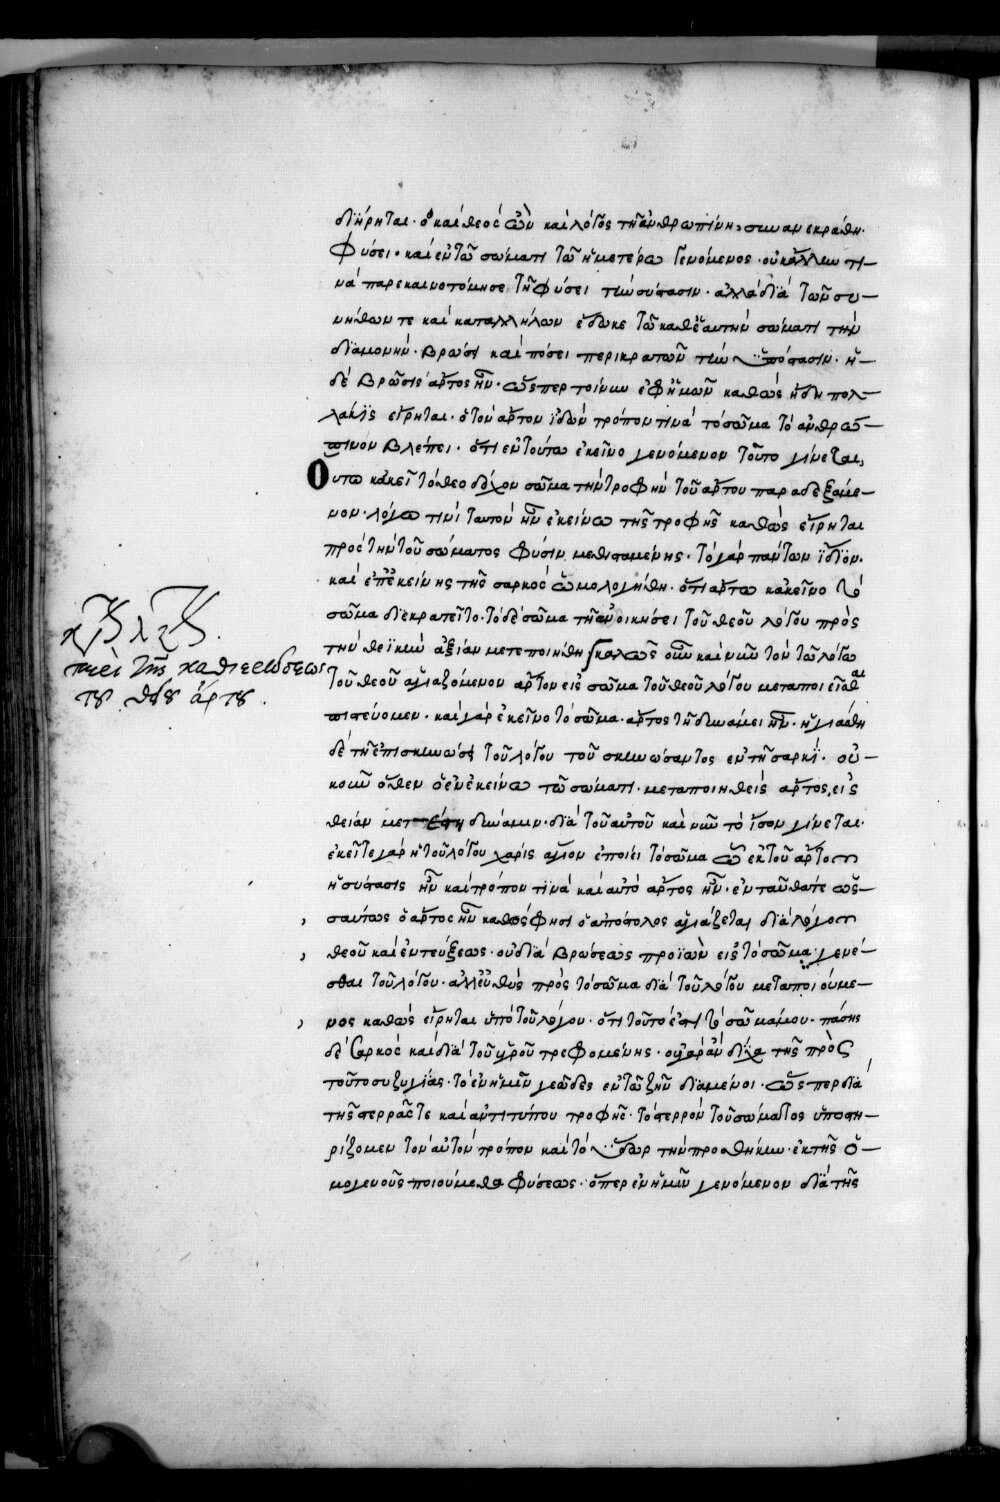 διήρηται· ὁ καὶ θεὸς ὢν καὶ λόγος τῇ ἀνθρωπίνῃ συνανεκράθη
φύσει· καὶ ἐν τῶ σώματι τῶ ἡμετέρω γενόμενος· οὐκ ἄλλην τι–
νὰ παρεκαινοτόμησε τῇ φύσει τὴν σύστασιν· ἀλλὰ διὰ τῶν συ–
νήθων τε καὶ καταλλήλων ἔδωκε τῶ καθ' ἑαυτὴν σώματι τὴν
διαμονήν· βρώσι καὶ πόσει περικρατῶν τὴν ὑπόστασιν· ἡ–
δὲ βρῶσις ἄρτος ἦν· ὥσπερ τοίνυν ἐφ' ἡμῶν καθὼς ἤδη πολ–
λακὶς εἴρηται· ὁ τὸν ἄρτον ἰδὼν τρόπον τινὰ τὸ σῶμα τὸ ἀνθρώ–
πινον βλέπει· ὅτι ἐν τούτω ἐκεῖνο γενόμενον τοῦτο γίνεται,
Οὕτω κἀκεῖ τὸ θεοδόχον σῶμα τὴν τροφὴν τοῦ ἄρτου παραδεξάμε–
νον· λόγω τινὶ ταυτὸν ἦν ἐκείνω τῆς τροφῆς καθὼς εἴρηται
πρὸς τὴν τοῦ σώματος φύσιν μεθισταμένης· τὸ γὰρ πάντων ἴδιον·
καὶ ἐπ' ἐκείνης τῆς σαρκὸς ὡμολογήθη· ὅτι ἄρτω κἀκεῖνο τὸ
σῶμα διεκρατεῖτο· τὸ δὲ σῶμα τῇ ἐνοικήσει τοῦ θεοῦ λόγου πρὸς
τὴν θεϊκὴν ἀξίαν μετεποιήθη καλῶς οὖν καὶ νῦν τὸν τῶ λόγω
τοῦ θεοῦ ἁγιαζόμενον ἄρτον εἰς σῶμα τοῦ θεοῦ λόγου μεταποιεῖσθαι
πιστεύομεν· καὶ γὰρ ἐκεῖνο τὸ σῶμα· ἄρτος τῇ δυνάμει ἦν· ἡγιάσθη
δὲ τῇ ἐπισκηνώσι τοῦ λόγου τοῦ σκηνώσαντος ἐν τῇ σαρκὶ· οὐ–
κοῦν ὅθεν ὁ ἐν ἐκείνω τῶ σώματι· μεταποιηθεὶς ἄρτος, εἰς
θείαν δύναμιν· διὰ τοῦ αὐτοῦ καὶ νῦν τὸ ἴσον γίνεται·
ἐκεῖ τε γὰρ ἡ τοῦ λόγου χάρις ἅγιον ἐποίει τὸ σῶμα ὧ ἐκ τοῦ ἄρτου
ἡ σύστασις ἦν καὶ τρόπον τινὰ καὶ αὐτὸ ἄρτος ἦν· ἐνταῦθά τε ὡς–
σαύτως ὁ ἄρτος ἦν καθώς φησι ὁ ἀπόστολος ἁγιάζεται διὰ λόγου
θεοῦ καὶ ἐντεύξεως· οὐ διὰ βρώσεως προϊὼν εἰς τὸ σῶμα γενέ–
σθαι τοῦ λόγου· ἀλλ' εὐθὺς πρὸς τὸ σῶμα διὰ τοῦ λόγου μεταποιούμε–
νος καθὼς εἴρηται ὑπὸ τοῦ λόγου· ὅτι τοῦτό ἐστι τὸ σῶμά μου· πάσης
δὲ σαρκὸς καὶ διὰ τοῦ ὑγροῦ τρεφομένης· οὐ γὰρ ἂν δίχα τῆς πρὸς
τοῦτο συζυγίας· τὸ ἐν ἡμῖν γεῶδες ἐν τῶ ζῆν διαμένοι· ὥσπερ διὰ
τῆς στερρᾶς τε καὶ ἀντιτύπου τροφῆς· τὸ στερρὸν τοῦ σώματος ὑποστη–
ρίζομεν τὸν αὐτὸν τρόπον καὶ τὸ ὕδωρ τὴν προσθήκην· ἐκ τῆς ὁ–
μογενοῦς ποιούμεθα φύσεως· ὅπερ ἐν ἡμῖν γενόμενον διὰ τῆς
περὶ τῆς καθιερώσεως
τοῦ θείου ἄρτου.